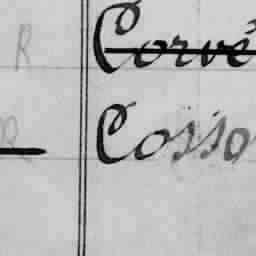 R Corvé
R Cosso